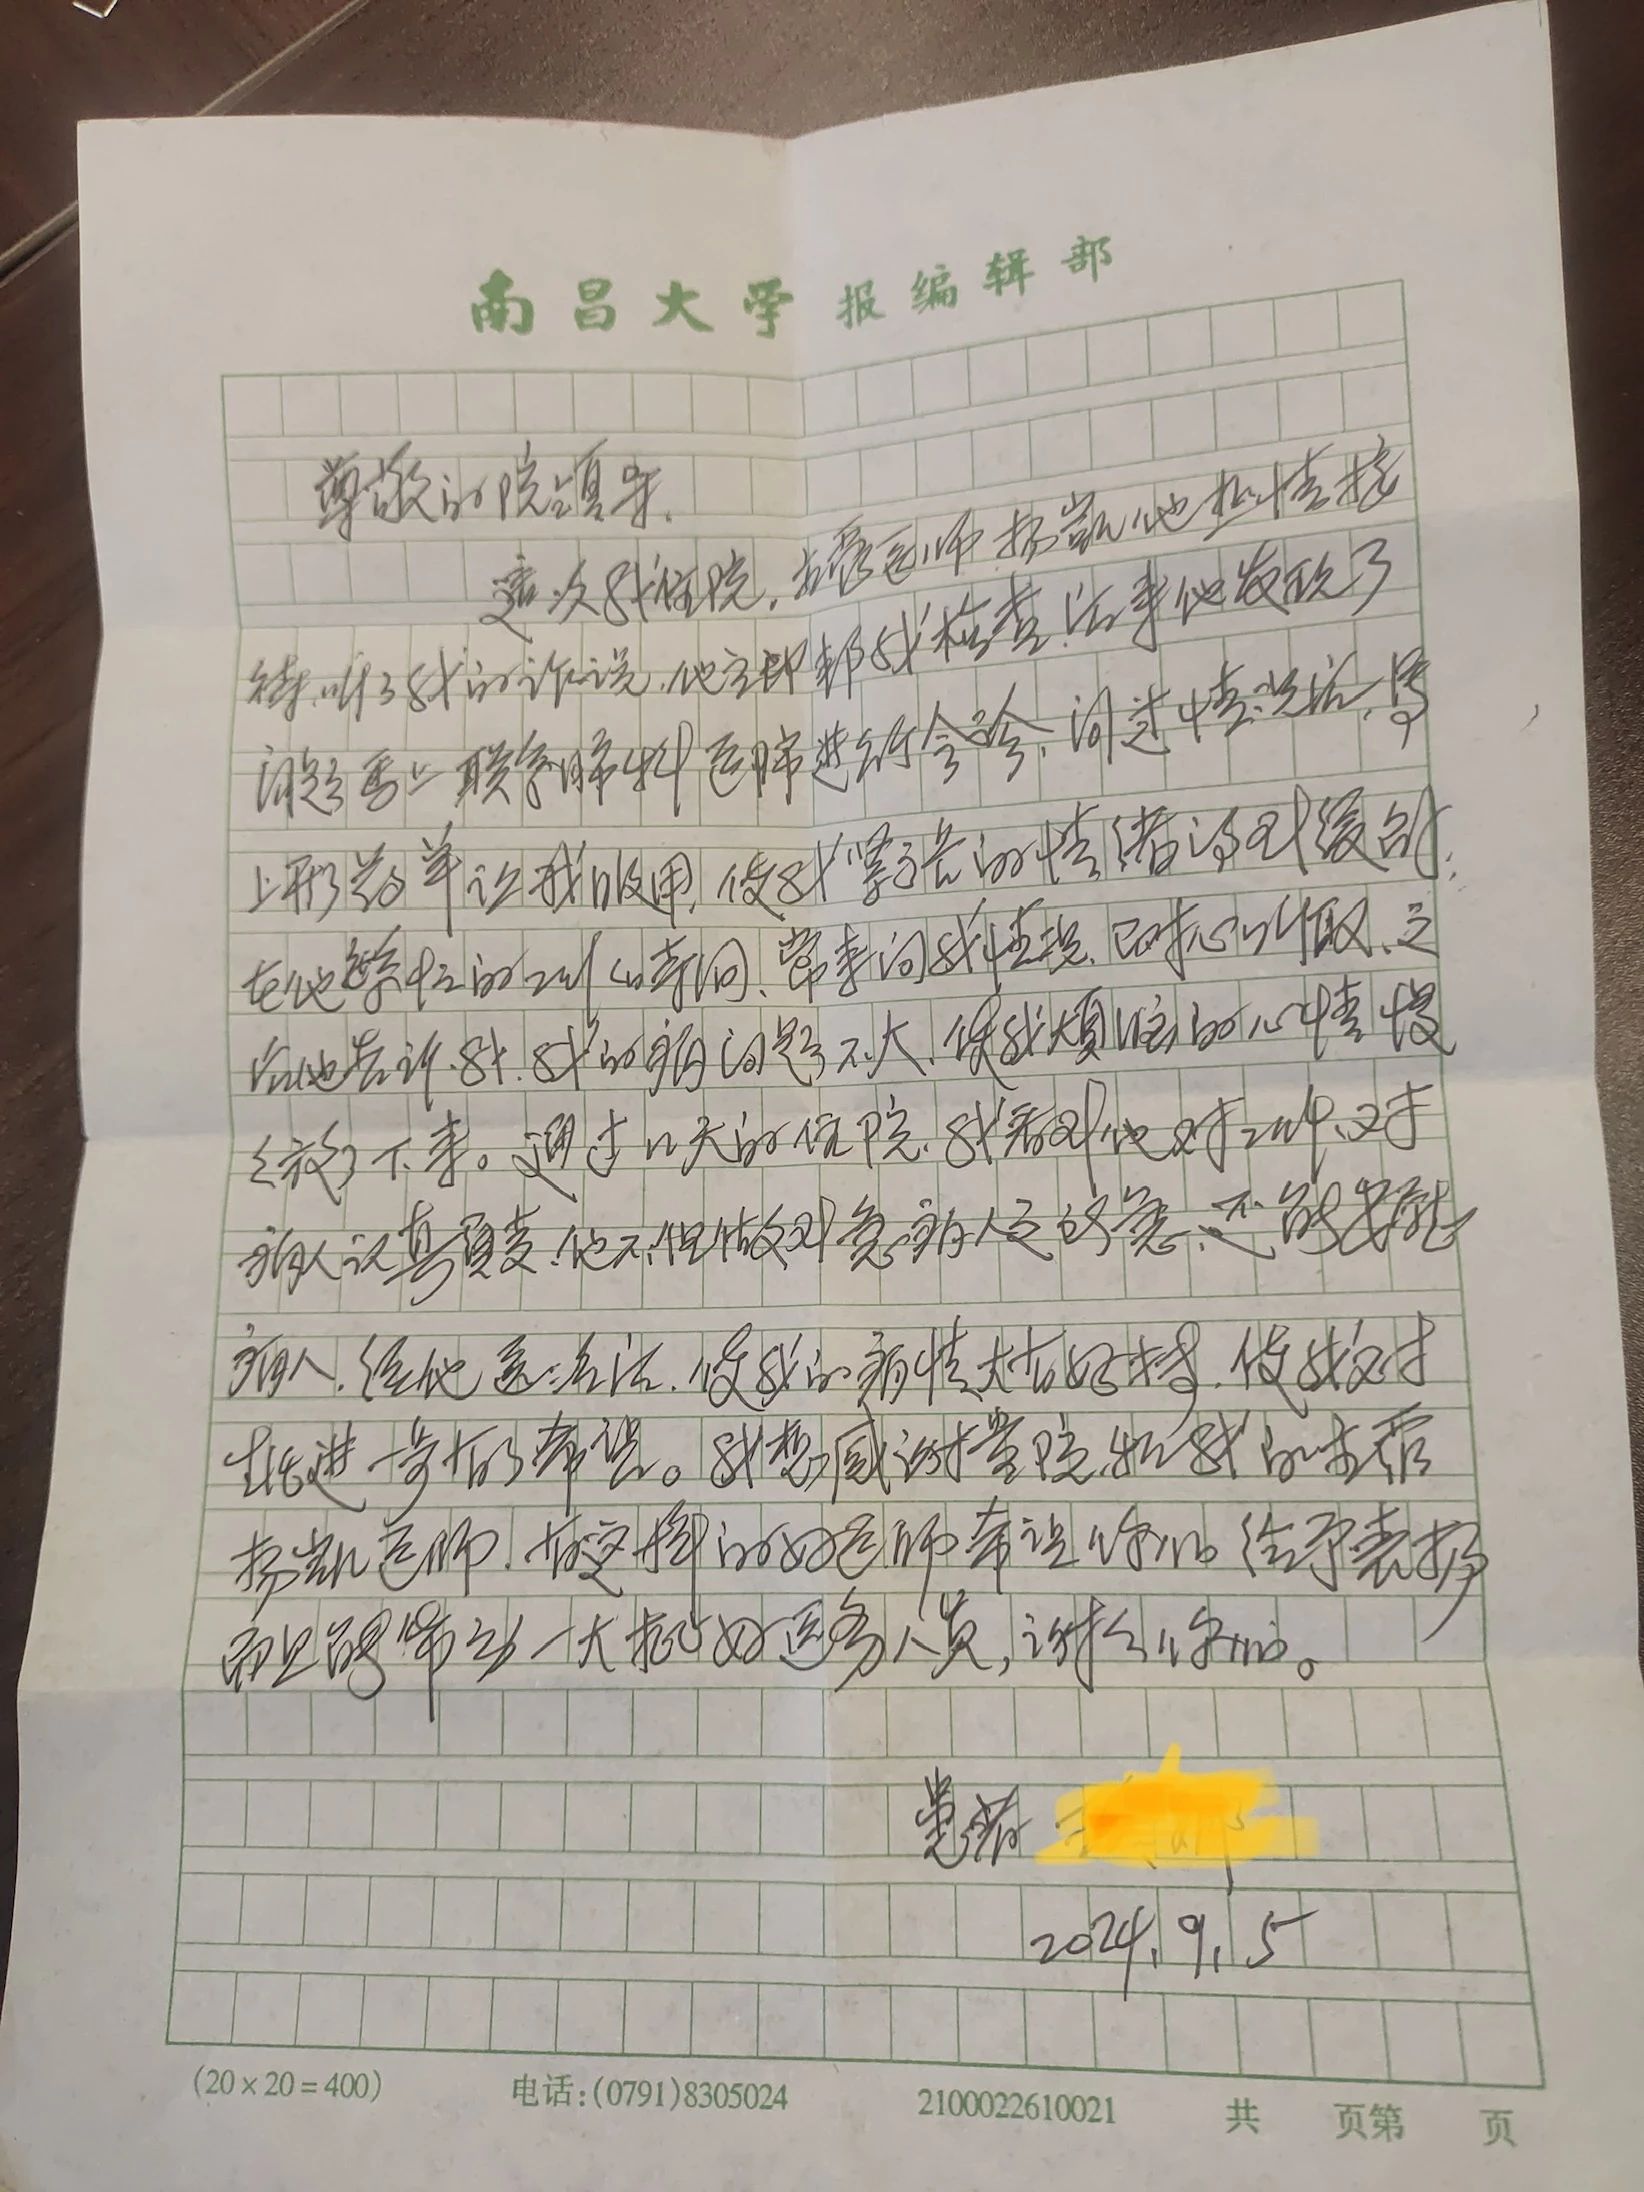 南昌大学报编辑部
尊敬的院领导.
这次我住院,主管医师杨凯他热情接
待,听了我的诉说,他立即帮我检查,后来他发现了
问题马上联系肺科医师进行会诊,问过情况后,马
上开药单让我服用,使我紧张的情绪得到缓解,
在他繁忙的工作时间,常来问我情况,
后他告诉我,我的病问题不大,使我烦恼的心情慢
慢放了下来。通过几天的住院,我看到他对工作,对
病人认真负责,他不但做到急病人之所急,还
病人,经他医治后,使我的病情大有好转,使我
进一步有了希望。我想感谢贵院和我的主管
杨凯医师,有这样的好医师希望你们给予表扬
而且能带动一大批好医务人员,谢谢你们。
患者
2024.9.5
(20×20=400) 电话:(0791)8305024 2100022610021 共 页第 页